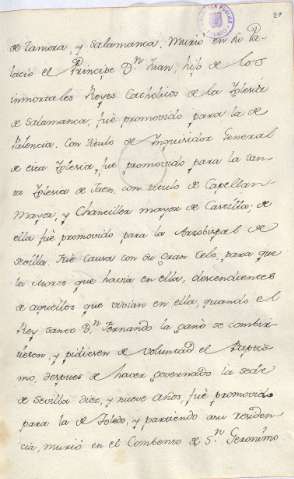 de Zamora, y Salamanca. Murió en su Pa-
lacio el Principe Dn. Juan, hijo de los
inmortales Reyes Catholicos de la Iglesia
de Salamanca, fué promovido para la de
Palencia, con titulo de Inquisidor General
de esta Iglesia, fué promovido para la san-
ta Iglesia de Jaen, con titulo de Capellan
Mayor, y Chanciller mayor de Castilla, de
ella fué promovido para la Arzobispal de
Sevilla. Fué causa con su Gran Celo, para que
los Moros que havia en ella, descendientes
de aquellos que vivian en ella, quando el
Rey santo Dn. Fernando la ganó se combir-
tiesen, y pidiesen de voluntad el Baptis-
mo, despues de haver governado la sede
de Sevilla diez, y nueve años, fué promovido
para la de Toledo, y partiendo a su residen-
cia, murió en el Combento de Sn. Geronimo